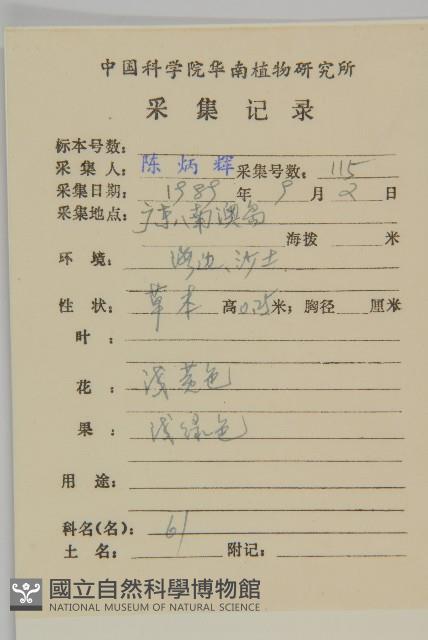 中国科学院华南植物研究所
采集记录
标本号数:
采集人: 陈炳辉 采集号数: 115
采集日期: 1989年9月2日
采集地点: 广东南澳岛
海拨 米
环境: 海边、沙土
性状: 草本 高0.25米; 胸径 厘米
叶:
花: 浅黄色
果: 浅绿色
用途:
科名(名): 61
土名: 附记:
國立自然科學博物館
NATIONAL MUSEUM OF NATURAL SCIENCE